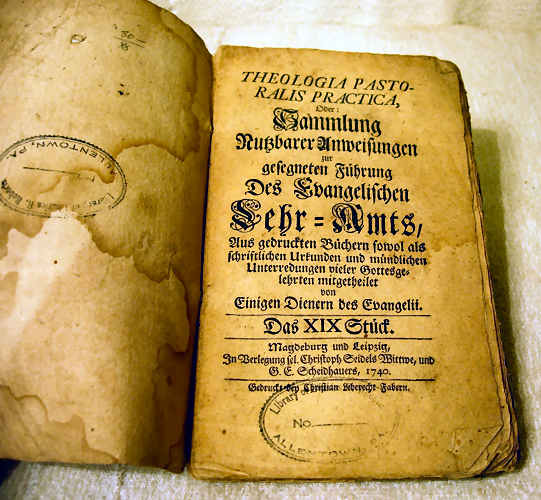 50
ALLENTOWN, PA.
THEOLOGIA PASTO-
RALIS PRACTICA,
Oder:
Sammlung
Nutzbarer Anweisungen
zur
gesegneten Führung
Des Evangelischen
Lehr-Amts,
Aus gedruckten Büchern sowol als
schriftlichen Urkunden und mündlichen
Unterredungen vieler Gottesge-
lehrten mitgetheilet
von
Einigen Dienern des Evangelii.
Das XIX Stück.
Magdeburg und Leipzig,
In Verlegung sel. Christoph Seidels Wittwe, und
G. E. Scheidhauers, 1740.
Gedruckt bey Christian Leberecht Fabern.
Library of
No.
ALLENTOWN, PA.